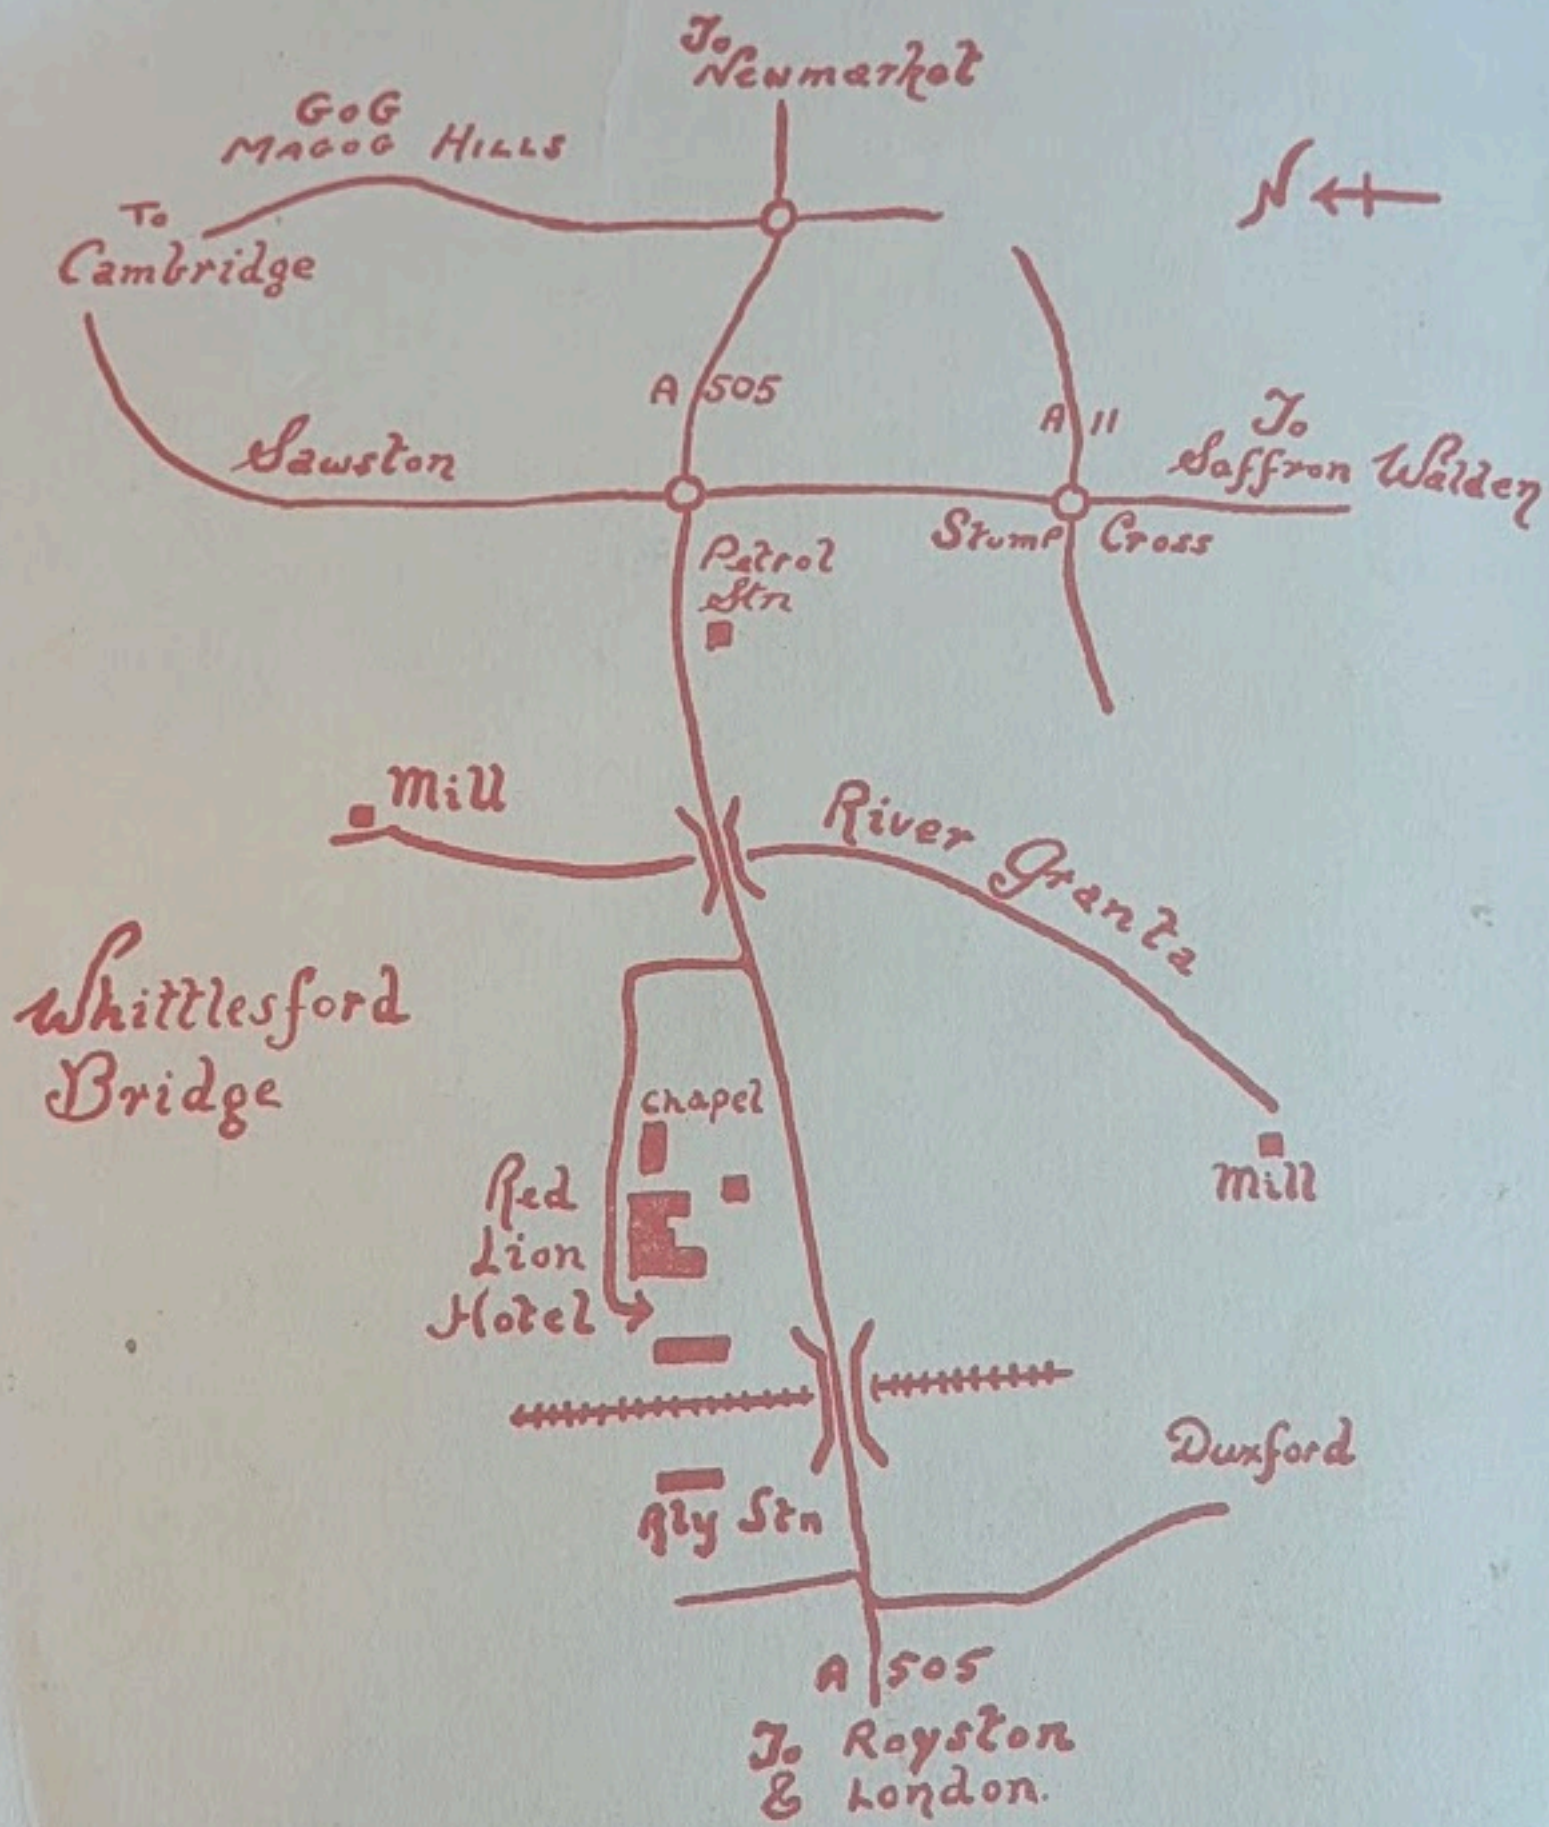 To
Newmarket
GOG
MAGOG HILLS
N
To
Cambridge
A 505
A 11
To
Saffron Walden
Sawston
Stump Cross
Petrol
Stn
Mill
River Granta
Whittlesford
Bridge
Chapel
Red
Lion
Hotel
Mill
Duxford
Rly Stn
A 505
To Royston
& London.